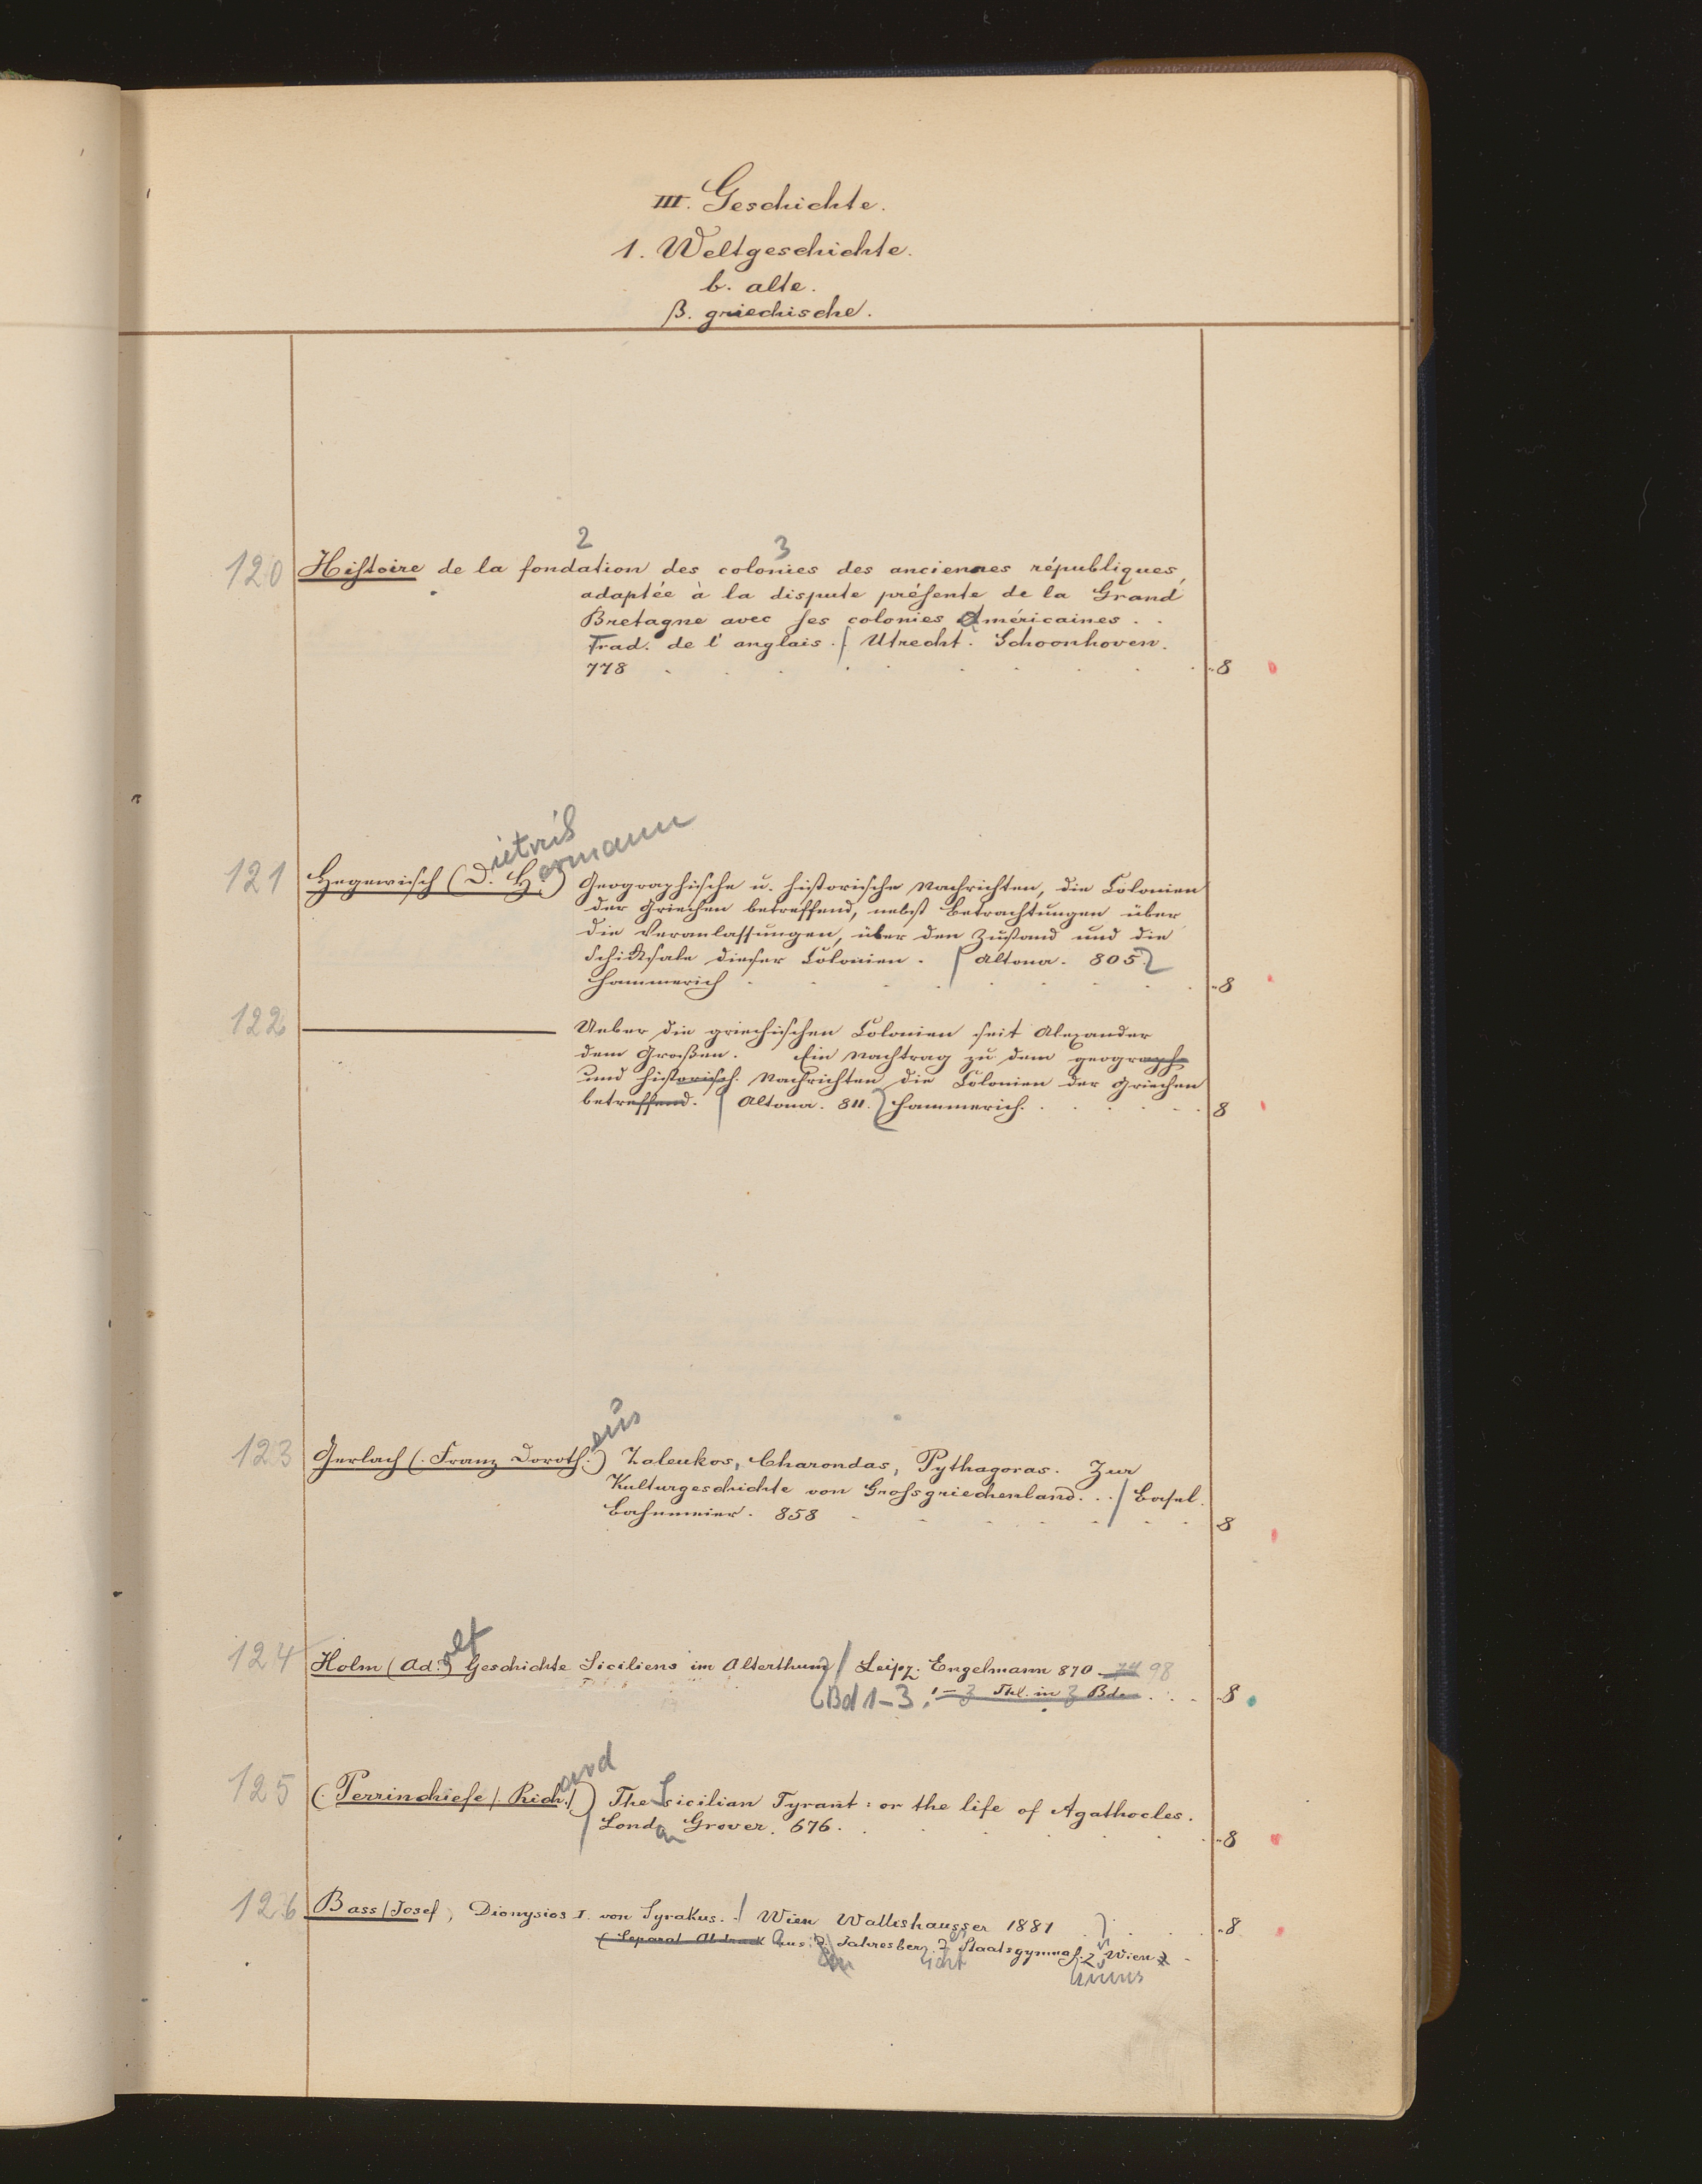 III. Geschichte.
1. Weltgeschichte.
b. alte.
β. griechische.
2 3
120 Histoire de la fondation des colonies des anciennes républiques,
adaptée à la dispute présente de la Grand
Bretagne avec ses colonies Américaines . .
Trad. de l'anglais. / Utrecht. Schoonhoven.
778 . . . . . . . . . 8
ietrich
ermann
121 Hegewisch (D. H.) Geographische u. historische Nachrichten, die Colonien
der Griechen betreffend, nebst Betrachtungen über
die Veranlassungen, über den Zustand und die
Schicksale dieser Colonien. / Altona. 805.
Hammerich . . . . . . . . 8
122 ——— Ueber die griechischen Colonien seit Alexander
dem Großen. Ein Nachtrag zu dem geograph.
und historisch. Nachrichten die Colonien der Griechen
betreffend. / Altona. 811. Hammerich. . . . . . 8
eus
123 Gerlach (Franz Doroth.) Zaleukos, Charondas, Pythagoras. Zur
Kulturgeschichte von Grossgriechenland. . . / Basel.
Bahnmeier. 858 . . . . . . . 8
olf
124 Holm (Ad.) Geschichte Siciliens im Alterthum / Leipz. Engelmann 870 - 74 98
Bd 1-3. 1-3 Thl. in 3 Bde . . . 8
ard
125 (Perrinchiefe (Rich.)) The Sicilian Tyrant: or the life of Agathocles.
/ London Grover. 676. . . . . . . 8
126 Bass (Josef, Dionysios I. von Syrakus. - / Wien Wallishausser 1881 . . . 8
(Separat Abdruck Aus: d. Jahresber. d Staatsgymnas. z. Wien)
icht